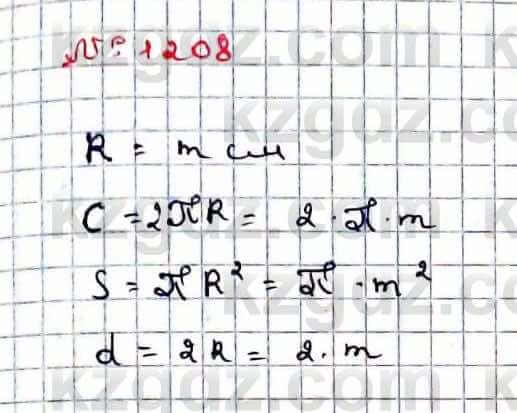 № 1208
R = m см
C = 2πR = 2 · π · m
S = πR² = π · m²
d = 2R = 2 · m
kzgdz.com